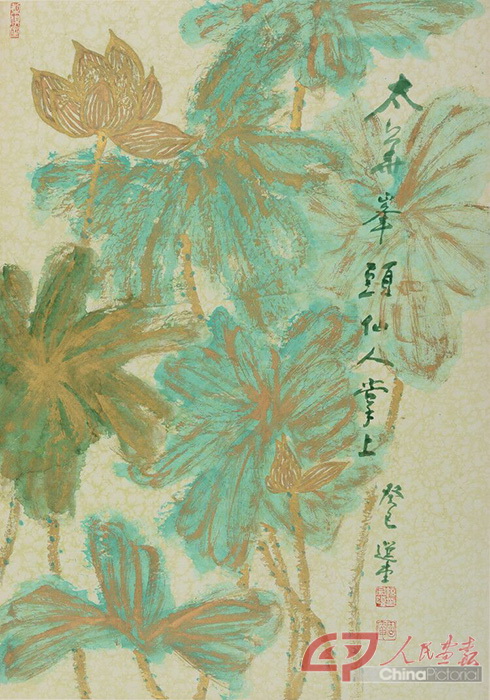 太華峯頭仙人掌上
癸巳 選堂
人民画报
ChinaPictorial